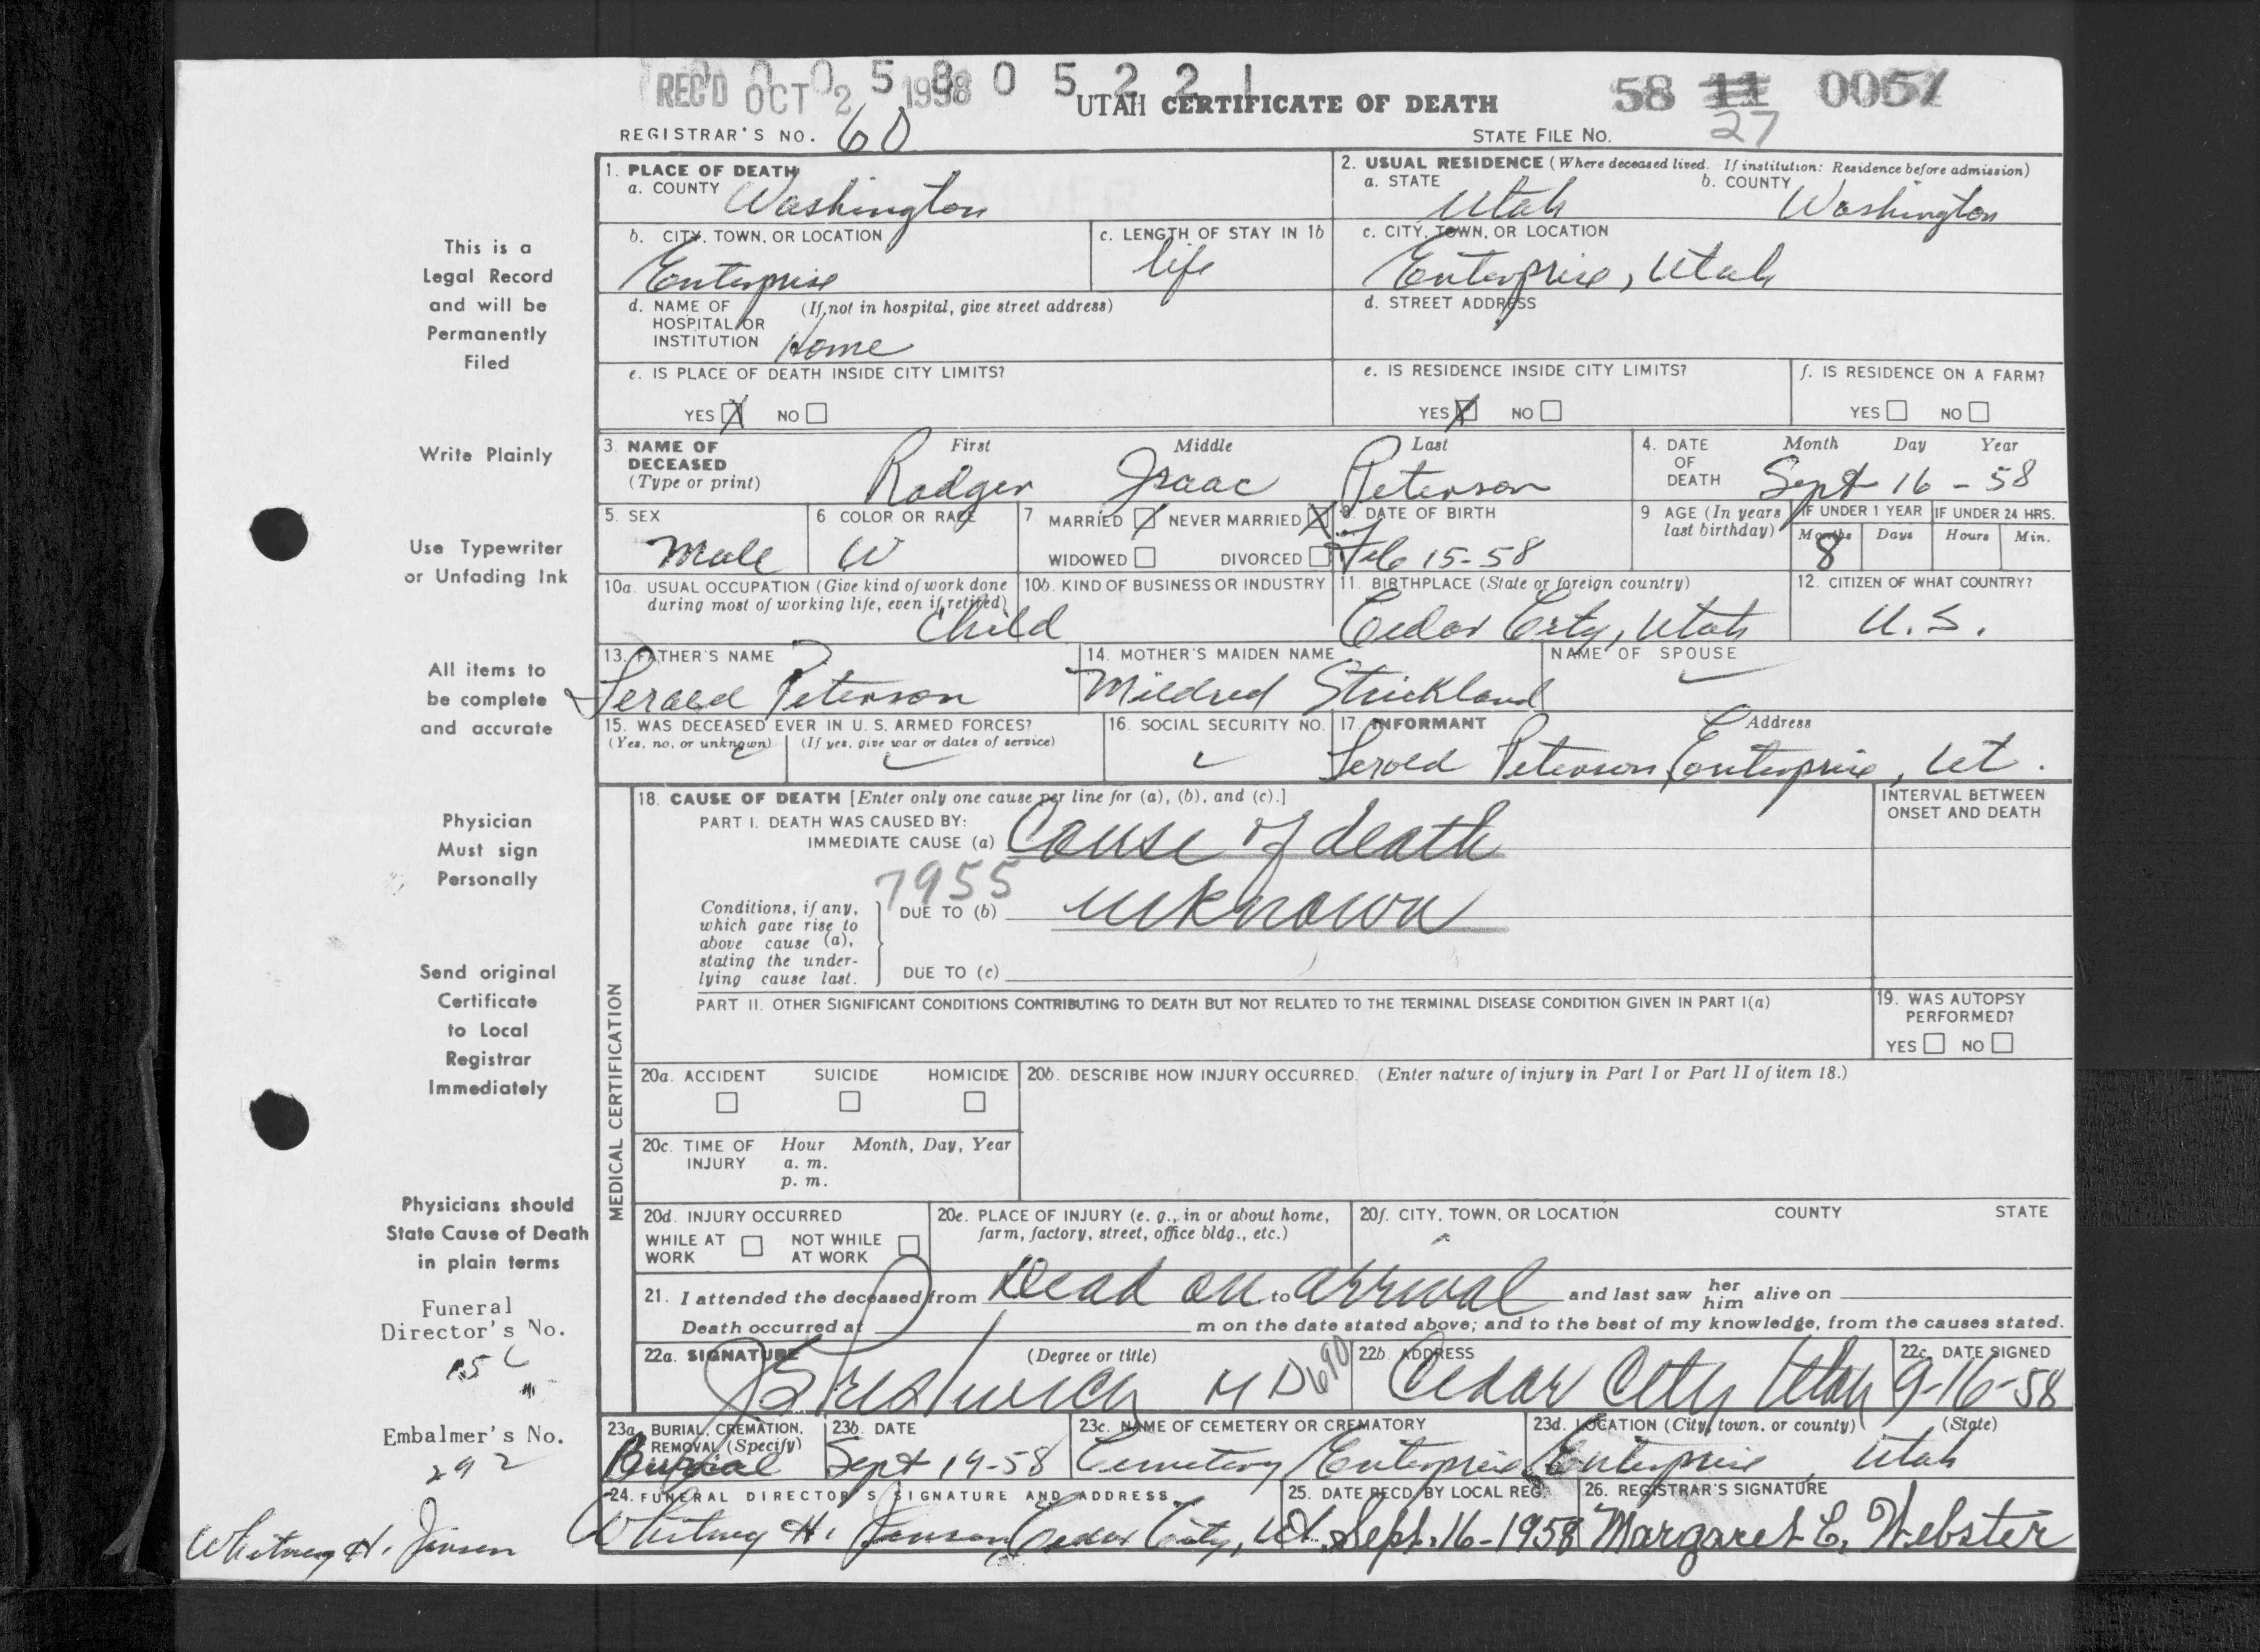 REC'D OCT 2 1958
0 0 5 8 0 5 2 2 1
UTAH CERTIFICATE OF DEATH
58 11 0051
27
REGISTRAR'S NO. 60
STATE FILE NO.
1. PLACE OF DEATH
a. COUNTY Washington
2. USUAL RESIDENCE (Where deceased lived. If institution: Residence before admission)
a. STATE Utah b. COUNTY Washington
b. CITY, TOWN, OR LOCATION Enterprise
c. LENGTH OF STAY IN 1b life
c. CITY, TOWN, OR LOCATION Enterprise, Utah
d. NAME OF HOSPITAL OR INSTITUTION (If not in hospital, give street address) Home
d. STREET ADDRESS
e. IS PLACE OF DEATH INSIDE CITY LIMITS?
YES X NO
e. IS RESIDENCE INSIDE CITY LIMITS?
YES X NO
f. IS RESIDENCE ON A FARM?
YES NO
3. NAME OF DECEASED (Type or print)
First Middle Last
Rodger Isaac Peterson
4. DATE OF DEATH Month Day Year
Sept 16 - 58
5. SEX Male
6 COLOR OR RACE W
7 MARRIED NEVER MARRIED X
WIDOWED DIVORCED
8. DATE OF BIRTH Feb 15-58
9 AGE (In years last birthday)
IF UNDER 1 YEAR IF UNDER 24 HRS.
Months Days Hours Min.
8
10a. USUAL OCCUPATION (Give kind of work done during most of working life, even if retired) Child
10b. KIND OF BUSINESS OR INDUSTRY
11. BIRTHPLACE (State or foreign country) Cedar City, Utah
12. CITIZEN OF WHAT COUNTRY? U.S.
13. FATHER'S NAME Peterson
14. MOTHER'S MAIDEN NAME Mildred Strickland
NAME OF SPOUSE
15. WAS DECEASED EVER IN U. S. ARMED FORCES?
(Yes, no, or unknown) (If yes, give war or dates of service)
16. SOCIAL SECURITY NO.
17. INFORMANT Address
Peterson, Enterprise, Ut.
18. CAUSE OF DEATH [Enter only one cause per line for (a), (b), and (c).]
INTERVAL BETWEEN ONSET AND DEATH
PART I. DEATH WAS CAUSED BY:
IMMEDIATE CAUSE (a) Cause of death
7955
Conditions, if any, which gave rise to above cause (a), stating the underlying cause last.
DUE TO (b) unknown
DUE TO (c)
PART II. OTHER SIGNIFICANT CONDITIONS CONTRIBUTING TO DEATH BUT NOT RELATED TO THE TERMINAL DISEASE CONDITION GIVEN IN PART I(a)
19. WAS AUTOPSY PERFORMED?
YES NO
MEDICAL CERTIFICATION
20a. ACCIDENT SUICIDE HOMICIDE
20b. DESCRIBE HOW INJURY OCCURRED. (Enter nature of injury in Part I or Part II of item 18.)
20c. TIME OF INJURY Hour Month, Day, Year
a. m.
p. m.
20d. INJURY OCCURRED
WHILE AT WORK NOT WHILE AT WORK
20e. PLACE OF INJURY (e. g., in or about home, farm, factory, street, office bldg., etc.)
20f. CITY, TOWN, OR LOCATION COUNTY STATE
21. I attended the deceased from Dead on to arrival and last saw her him alive on
Death occurred at m on the date stated above; and to the best of my knowledge, from the causes stated.
22a. SIGNATURE (Degree or title) MD 690
22b. ADDRESS Cedar City Utah
22c. DATE SIGNED 9-16-58
23a. BURIAL, CREMATION, REMOVAL (Specify) Burial
23b. DATE Sept 19-58
23c. NAME OF CEMETERY OR CREMATORY Cemetery Enterprise
23d. LOCATION (City, town, or county) (State) Enterprise, Utah
24. FUNERAL DIRECTOR'S SIGNATURE AND ADDRESS
Whitney H. Jensen, Cedar City, Ut.
25. DATE REC'D. BY LOCAL REG. Sept. 16-1958
26. REGISTRAR'S SIGNATURE Margaret C. Webster
This is a
Legal Record
and will be
Permanently
Filed
Write Plainly
Use Typewriter
or Unfading Ink
All items to
be complete
and accurate
Physician
Must sign
Personally
Send original
Certificate
to Local
Registrar
Immediately
Physicians should
State Cause of Death
in plain terms
Funeral
Director's No.
Embalmer's No.
292
Whitney H. Jensen